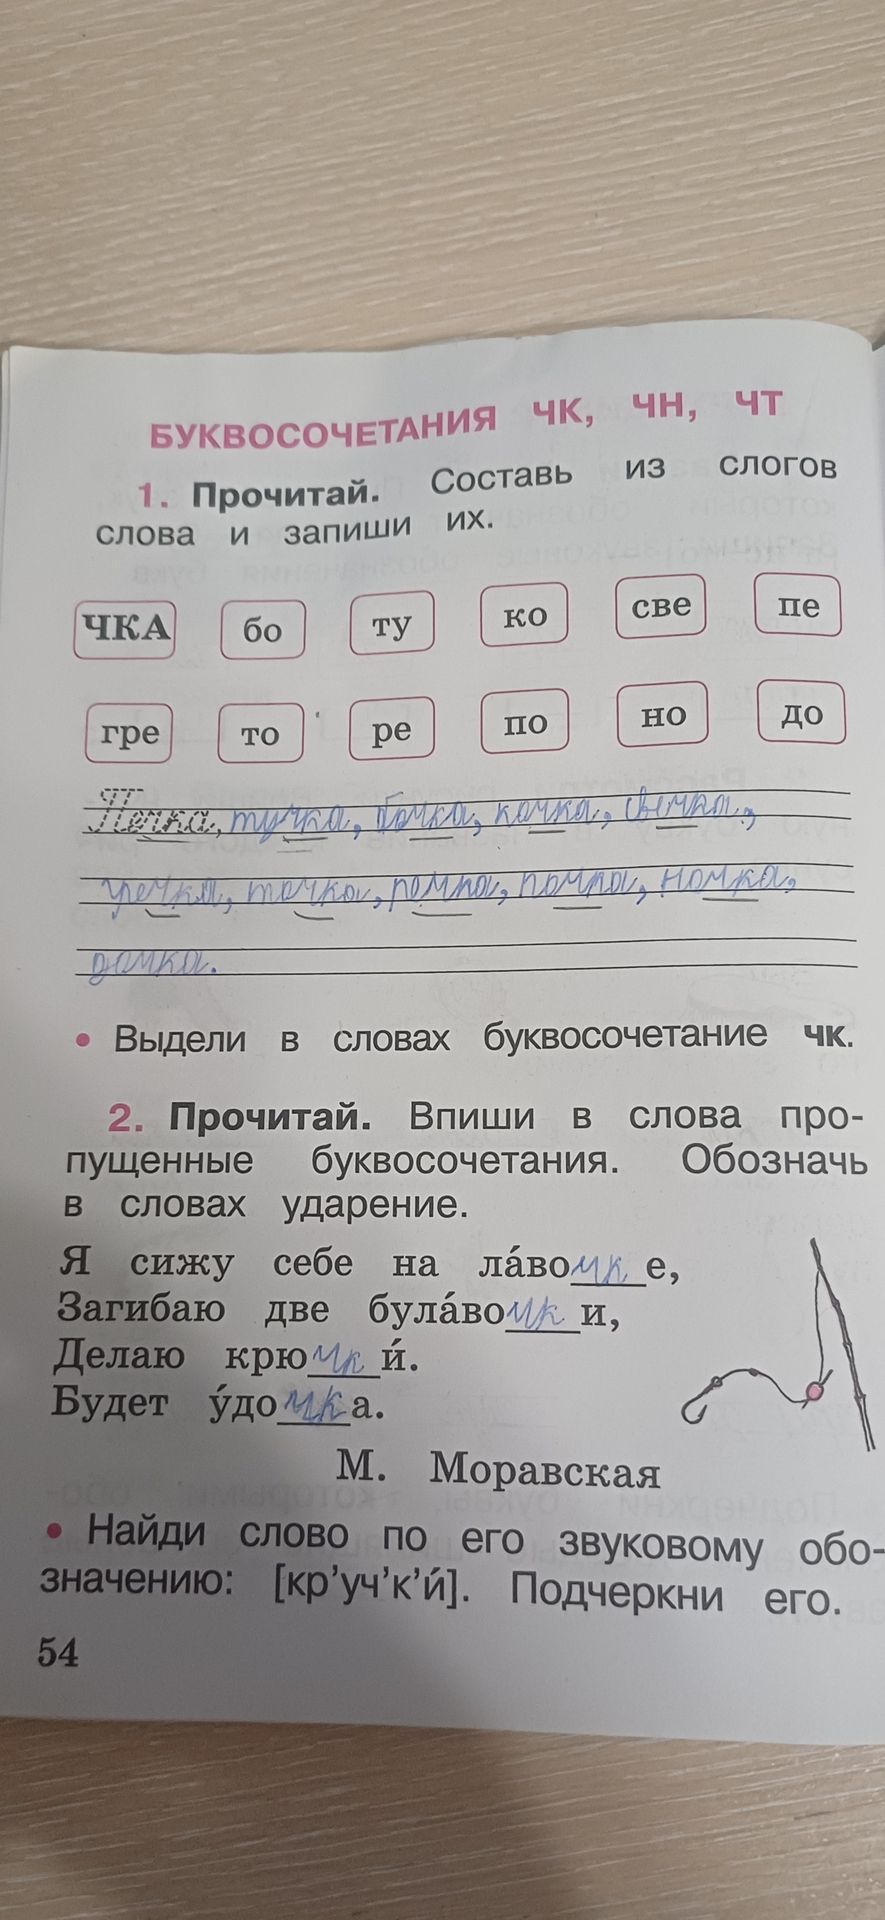 БУКВОСОЧЕТАНИЯ ЧК, ЧН, ЧТ
1. Прочитай. Составь из слогов
слова и запиши их.
ЧКА бо ту ко све пе
гре то ре по но до
Печка, тучка, бочка, кочка, свечка,
гречка, точка, речка, почка, ночка,
дочка.
• Выдели в словах буквосочетание чк.
2. Прочитай. Впиши в слова про-
пущенные буквосочетания. Обозначь
в словах ударение.
Я сижу себе на ла́вочке,
Загибаю две була́вочки,
Делаю крючки́.
Будет у́дочка.
М. Моравская
• Найди слово по его звуковому обо-
значению: [кр’уч’к’и́]. Подчеркни его.
54